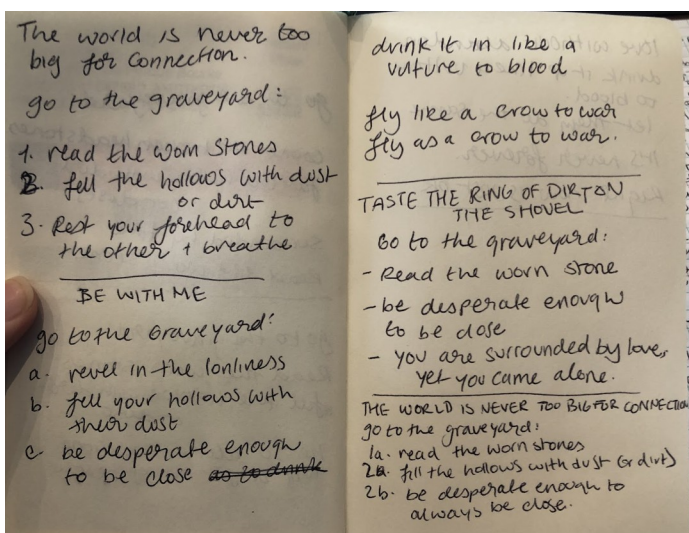 The world is never too
big for connection.
go to the graveyard:
1. read the worn stones
2. fell the hollows with dust
or dirt
3. Rest your forehead to
the other + breathe
BE WITH ME
go to the Graveyard:
a. revel in the lonliness
b. fell your hollows with
their dust
c be desperate enough
to be close
drink it in like a
vulture to blood
fly like a crow to war
fly as a crow to war.
TASTE THE RING OF DIRT ON
THE SHOVEL
Go to the graveyard:
- Read the worn stone
- be desperate enough
to be close
- you are surrounded by love,
yet you came alone.
THE WORLD IS NEVER TOO BIG FOR CONNECTION
go to the graveyard:
1a. read the worn stones
2a. fill the hollows with dust (or dirt)
2b. be desperate enough to
always be close.